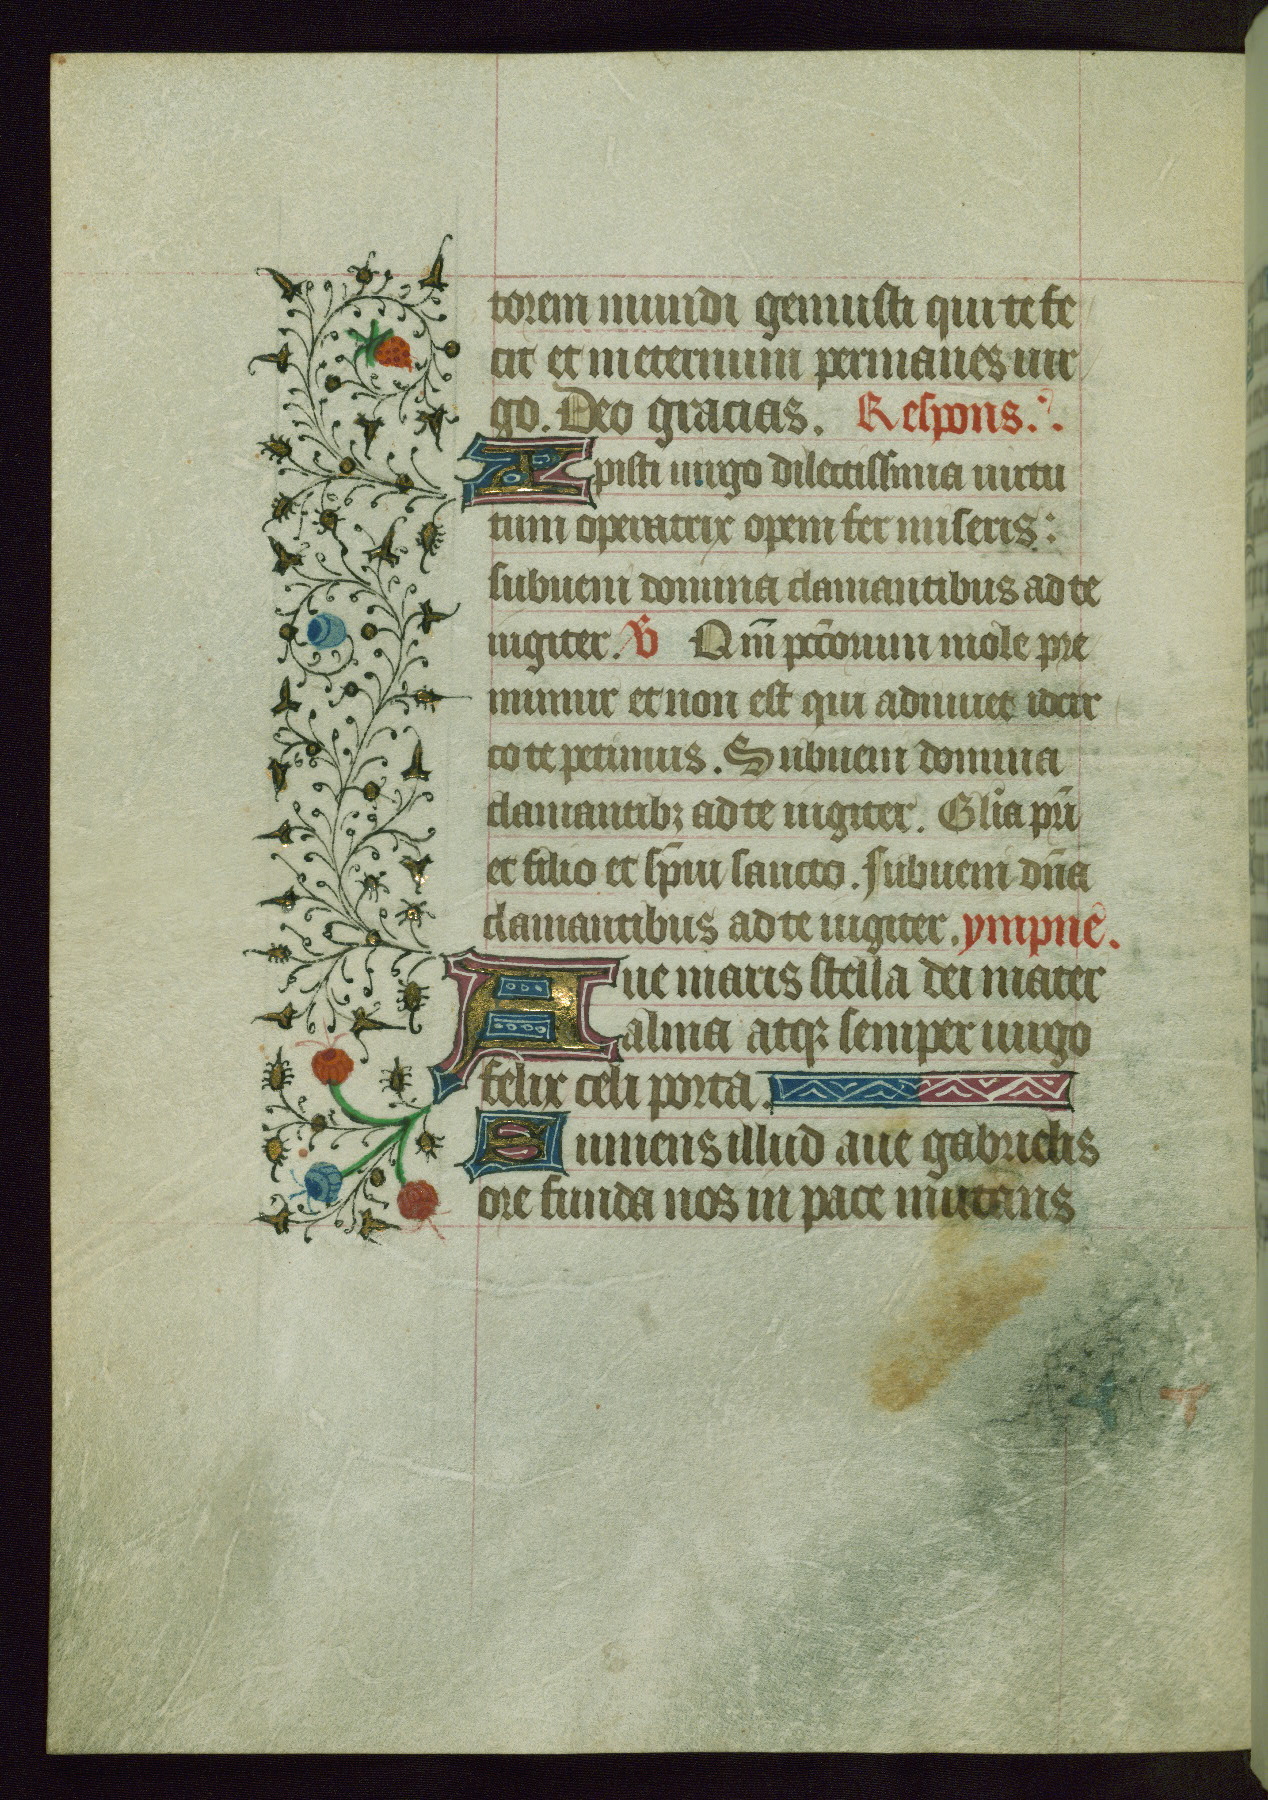 torem mundi genuisti qui te fe
cit et in eternum permanes uir
go. Deo gracias. Respons.
Xpisti uirgo dilectissima uirtu
tum operatrix opem fer miseris:
subueni domina clamantibus ad te
iugiter. V Qm̄ pcc̄orum mole pre
mimur et non est qui adiuuet idcir
co te petimus. Subueni domina
clamantibꝫ ad te iugiter. Glīa pr̄i
et filio et sp̄iu sancto. subueni dn̄a
clamantibus ad te iugiter. ympnē.
Aue maris stella dei mater
alma atqꝫ semper uirgo
felix celi porta.
Sumens illud aue gabrielis
ore funda nos in pace mutans